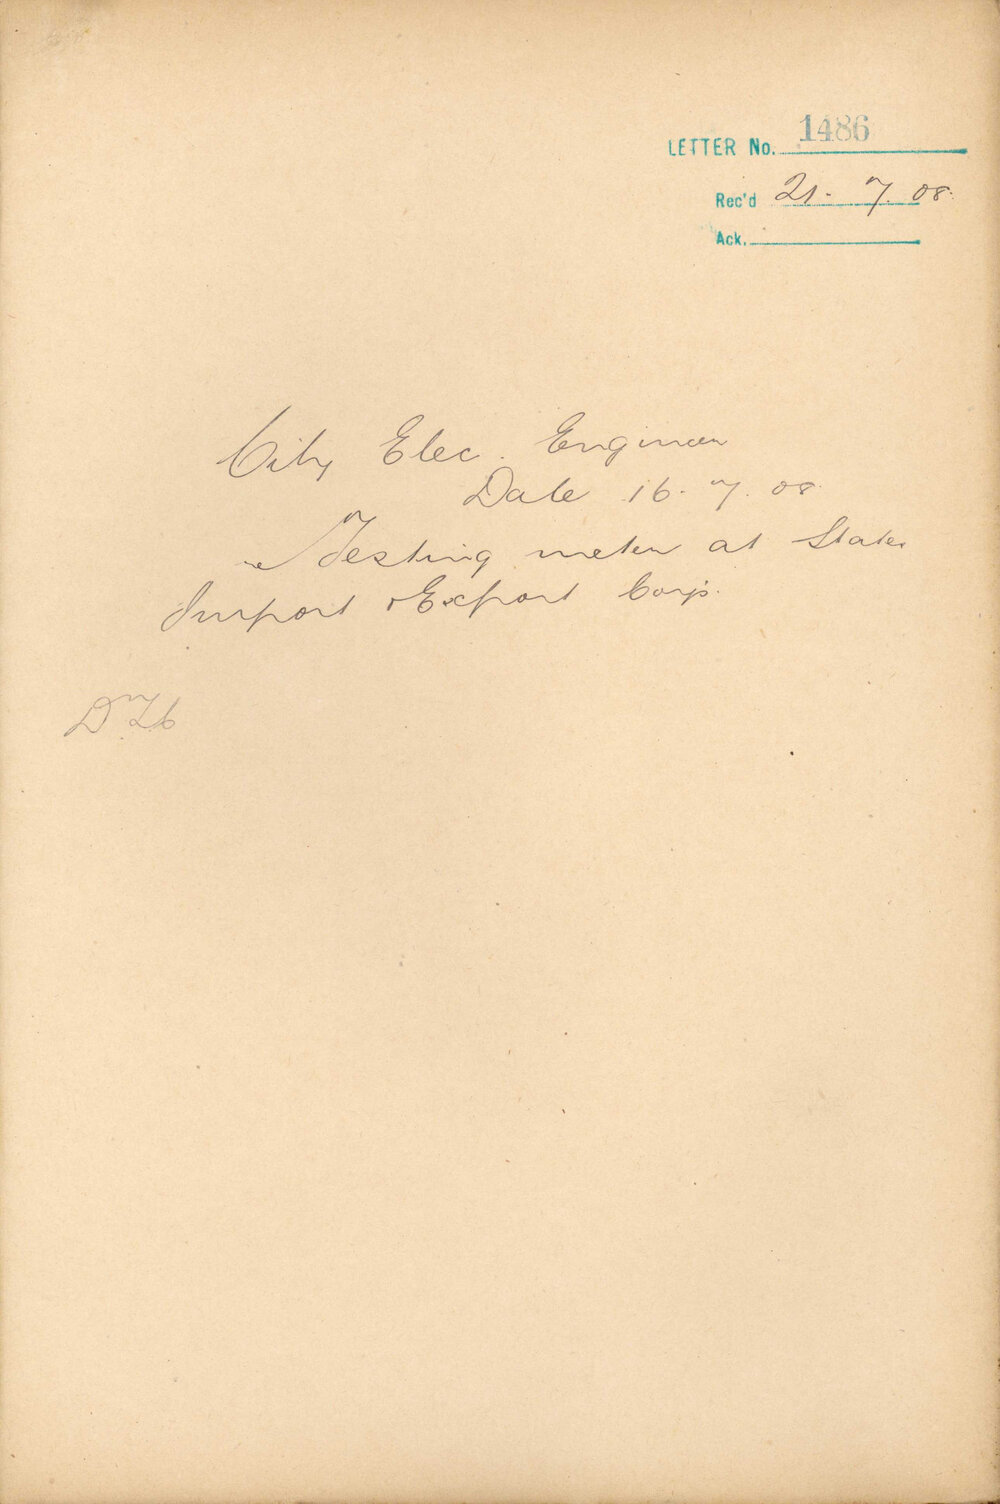 LETTER No. 1486
Rec'd 21. 7. 08.
Ack.
City Elec. Engineer
Date 16. 7. 08.
re Testing meter at States
Import & Export Corp.